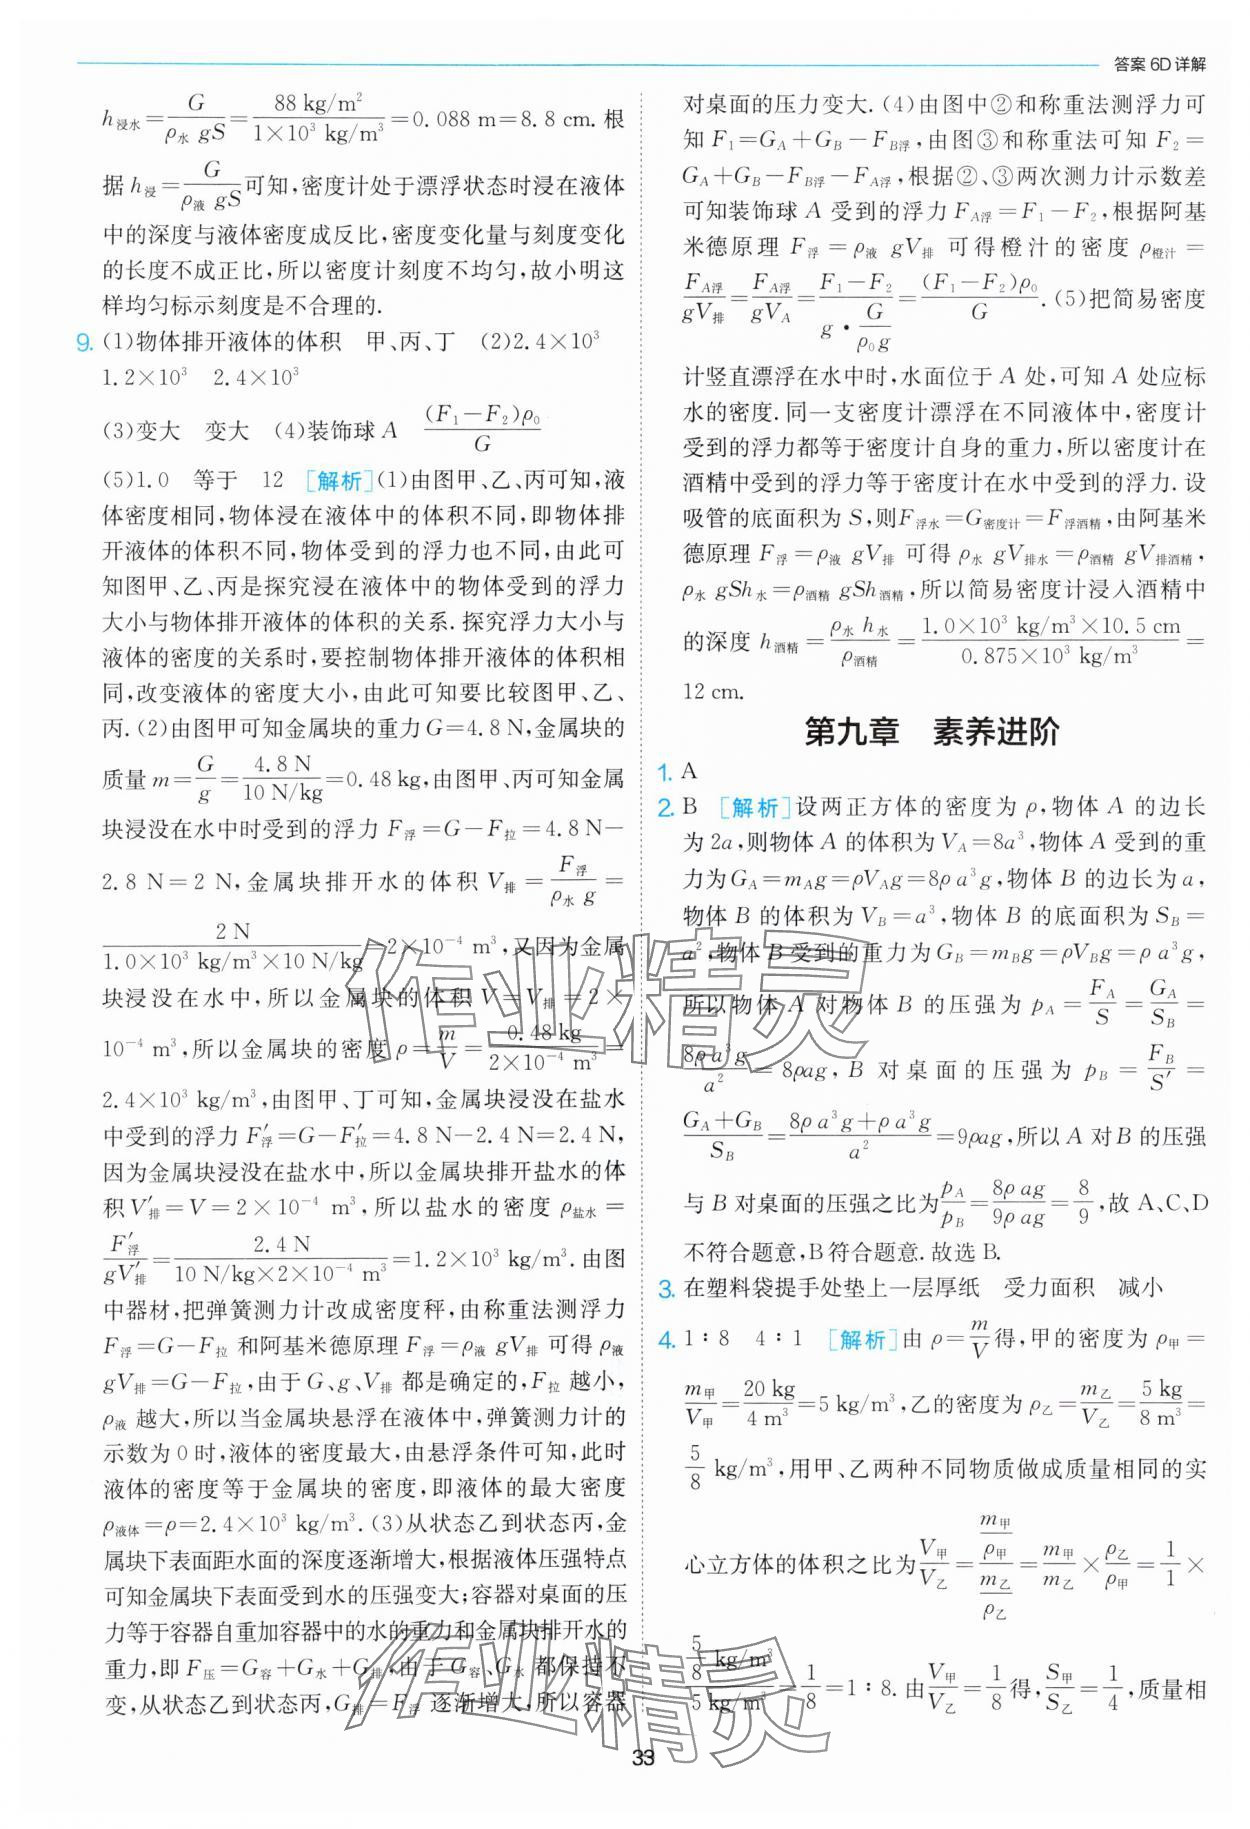 答案 6D 详解
h浸水=G/(ρ水 gS)=(88 kg/m²)/(1×10³ kg/m³)=0.088 m=8.8 cm.根
据 h浸=G/(ρ液 gS)可知,密度计处于漂浮状态时浸在液体
中的深度与液体密度成反比,密度变化量与刻度变化
的长度不成正比,所以密度计刻度不均匀,故小明这
样均匀标示刻度是不合理的.
9. (1)物体排开液体的体积 甲、丙、丁 (2)2.4×10³
1.2×10³ 2.4×10³
(3)变大 变大 (4)装饰球 A (F₁-F₂)ρ₀/G
(5)1.0 等于 12 [解析](1)由图甲、乙、丙可知,液
体密度相同,物体浸在液体中的体积不同,即物体排
开液体的体积不同,物体受到的浮力也不同,由此可
知图甲、乙、丙是探究浸在液体中的物体受到的浮力
大小与物体排开液体的体积的关系.探究浮力大小与
液体的密度的关系时,要控制物体排开液体的体积相
同,改变液体的密度大小,由此可知要比较图甲、乙、
丙.(2)由图甲可知金属块的重力 G=4.8 N,金属块的
质量 m=G/g=(4.8 N)/(10 N/kg)=0.48 kg,由图甲、丙可知金属
块浸没在水中时受到的浮力 F浮=G-F拉=4.8 N-
2.8 N=2 N,金属块排开水的体积 V排=F浮/(ρ水 g)=
(2 N)/(1.0×10³ kg/m³×10 N/kg)=2×10⁻⁴ m³,又因为金属
块浸没在水中,所以金属块的体积 V=V排=2×
10⁻⁴ m³,所以金属块的密度 ρ=m/V=(0.48 kg)/(2×10⁻⁴ m³)=
2.4×10³ kg/m³,由图甲、丁可知,金属块浸没在盐水
中受到的浮力 F′浮=G-F′拉=4.8 N-2.4 N=2.4 N,
因为金属块浸没在盐水中,所以金属块排开盐水的体
积 V′排=V=2×10⁻⁴ m³,所以盐水的密度 ρ盐水=
F′浮/(gV′排)=(2.4 N)/(10 N/kg×2×10⁻⁴ m³)=1.2×10³ kg/m³.由图
中器材,把弹簧测力计改成密度秤,由称重法测浮力
F浮=G-F拉 和阿基米德原理 F浮=ρ液 gV排 可得 ρ液
gV排=G-F拉,由于 G、g、V排 都是确定的,F拉 越小,
ρ液 越大,所以当金属块悬浮在液体中,弹簧测力计的
示数为 0 时,液体的密度最大,由悬浮条件可知,此时
液体的密度等于金属块的密度,即液体的最大密度
ρ液体=ρ=2.4×10³ kg/m³.(3)从状态乙到状态丙,金
属块下表面距水面的深度逐渐增大,根据液体压强特点
可知金属块下表面受到水的压强变大;容器对桌面的压
力等于容器自重加容器中的水的重力和金属块排开水的
重力,即 F压=G容+G水+G排,由于 G容、G水 都保持不
变,从状态乙到状态丙,G排=F浮 逐渐增大,所以容器
对桌面的压力变大.(4)由图中②和称重法测浮力可
知 F₁=G_A+G_B-F_B浮,由图③和称重法可知 F₂=
G_A+G_B-F_B浮-F_A浮,根据②、③两次测力计示数差
可知装饰球 A 受到的浮力 F_A浮=F₁-F₂,根据阿基
米德原理 F浮=ρ液 gV排 可得橙汁的密度 ρ橙汁=
F_A浮/(gV排)=F_A浮/(gV_A)=(F₁-F₂)/(g·G/(ρ₀g))=(F₁-F₂)ρ₀/G.(5)把简易密度
计竖直漂浮在水中时,水面位于 A 处,可知 A 处应标
水的密度.同一支密度计漂浮在不同液体中,密度计
受到的浮力都等于密度计自身的重力,所以密度计在
酒精中受到的浮力等于密度计在水中受到的浮力.设
吸管的底面积为 S,则F浮水=G密度计=F浮酒精,由阿基米
德原理 F浮=ρ液 gV排 可得 ρ水 gV排水=ρ酒精 gV排酒精,
ρ水 gSh水=ρ酒精 gSh酒精,所以简易密度计浸入酒精中
的深度 h酒精=(ρ水 h水)/ρ酒精=(1.0×10³ kg/m³×10.5 cm)/(0.875×10³ kg/m³)=
12 cm.
第九章 素养进阶
1. A
2. B [解析]设两正方体的密度为 ρ,物体 A 的边长
为 2a,则物体 A 的体积为 V_A=8a³,物体 A 受到的重
力为G_A=m_Ag=ρV_Ag=8ρa³g,物体 B 的边长为 a,
物体 B 的体积为 V_B=a³,物体 B 的底面积为 S_B=
a²,物体 B 受到的重力为 G_B=m_Bg=ρV_Bg=ρa³g,
所以物体 A 对物体 B 的压强为 p_A=F_A/S=G_A/S_B=
8ρa³g/a²=8ρag,B 对桌面的压强为 p_B=F_B/S′=
(G_A+G_B)/S_B=(8ρa³g+ρa³g)/a²=9ρag,所以 A 对 B 的压强
与 B 对桌面的压强之比为p_A/p_B=8ρag/9ρag=8/9,故 A、C、D
不符合题意,B 符合题意.故选 B.
3. 在塑料袋提手处垫上一层厚纸 受力面积 减小
4. 1∶8 4∶1 [解析]由 ρ=m/V得,甲的密度为 ρ甲=
m甲/V甲=(20 kg)/(4 m³)=5 kg/m³,乙的密度为 ρ乙=m乙/V乙=(5 kg)/(8 m³)=
5/8 kg/m³,用甲、乙两种不同物质做成质量相同的实
心立方体的体积之比为V甲/V乙=(m甲/ρ甲)/(m乙/ρ乙)=m甲/m乙×ρ乙/ρ甲=1/1×
(5/8 kg/m³)/(5 kg/m³)=1/8=1∶8.由V甲/V乙=1/8得,S甲/S乙=1/4,质量相
33
作业精灵
作业精灵